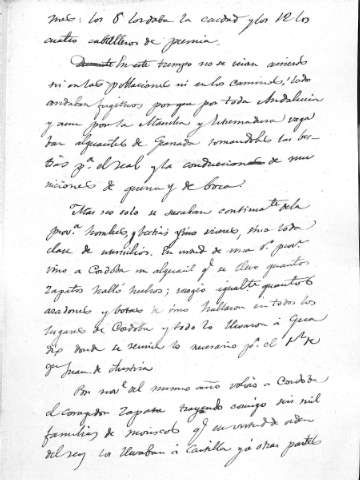 mas: los 6 los daba la ciudad y los 12 los
cuatro caballeros de premia.
En este tiempo no se veian arrieros
ni en las poblaciones ni en los caminos; todo
andaban fugitivos porque por toda Andalucia
y aun por la Mancha y Extremadura vaga
ban alguaciles de Granada tomandoles las bes
tias pª. el real y la conduccion de mu
niciones de guerra y de boca.
Mas no solo se sacaban continuamte de la
provª hombres, bestias y víveres, sino toda
clase de utensilios. En virtud de una
vino á Cordoba un alguacil q. se llevó cuantos
zapatos halló hechos; cargó igualte cuantos
asadores y botas de vino hallaron en todos los
lugares de Cordoba y todo lo llevaron á Gua
dix donde se reunia lo necesario pª. el
que Juan de Austria
Por novᵉ del mismo año volvió a Cordoba
el corregidor Zapata trayendo consigo seis mil
familias de moriscos q. en virtud de orden
del rey los llevaban á Castilla y á otras partes